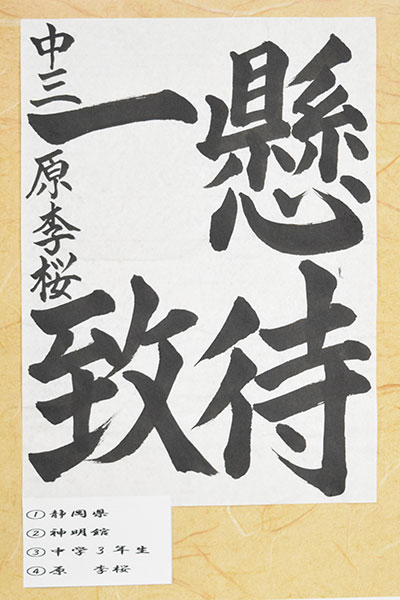 懸待
一致
中三 原李桜
①静岡県
②神明館
③中学3年生
④原 李桜